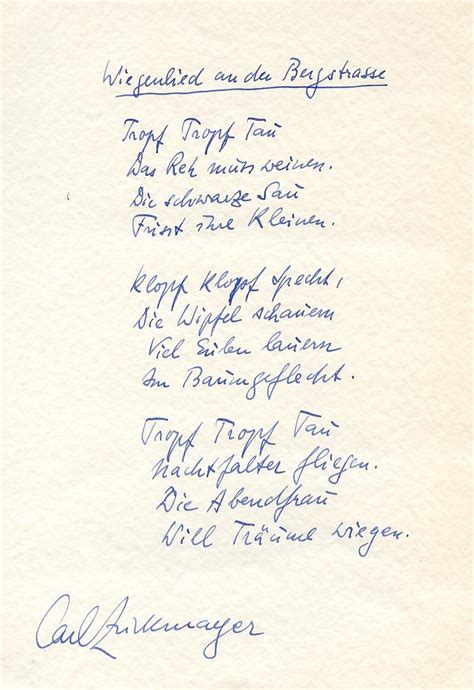 Wiegenlied an der Bergstrasse
Tropf Tropf Tau
Das Reh muss weinen.
Die schwarze Sau
Frisst ihre Kleinen.
Klopf Klopf Specht,
Die Wipfel schauern
Viel Eulen lauern
Im Baumgeflecht.
Tropf Tropf Tau
Nachtfalter fliegen.
Die Abendfrau
Will Träume wiegen.
Carl